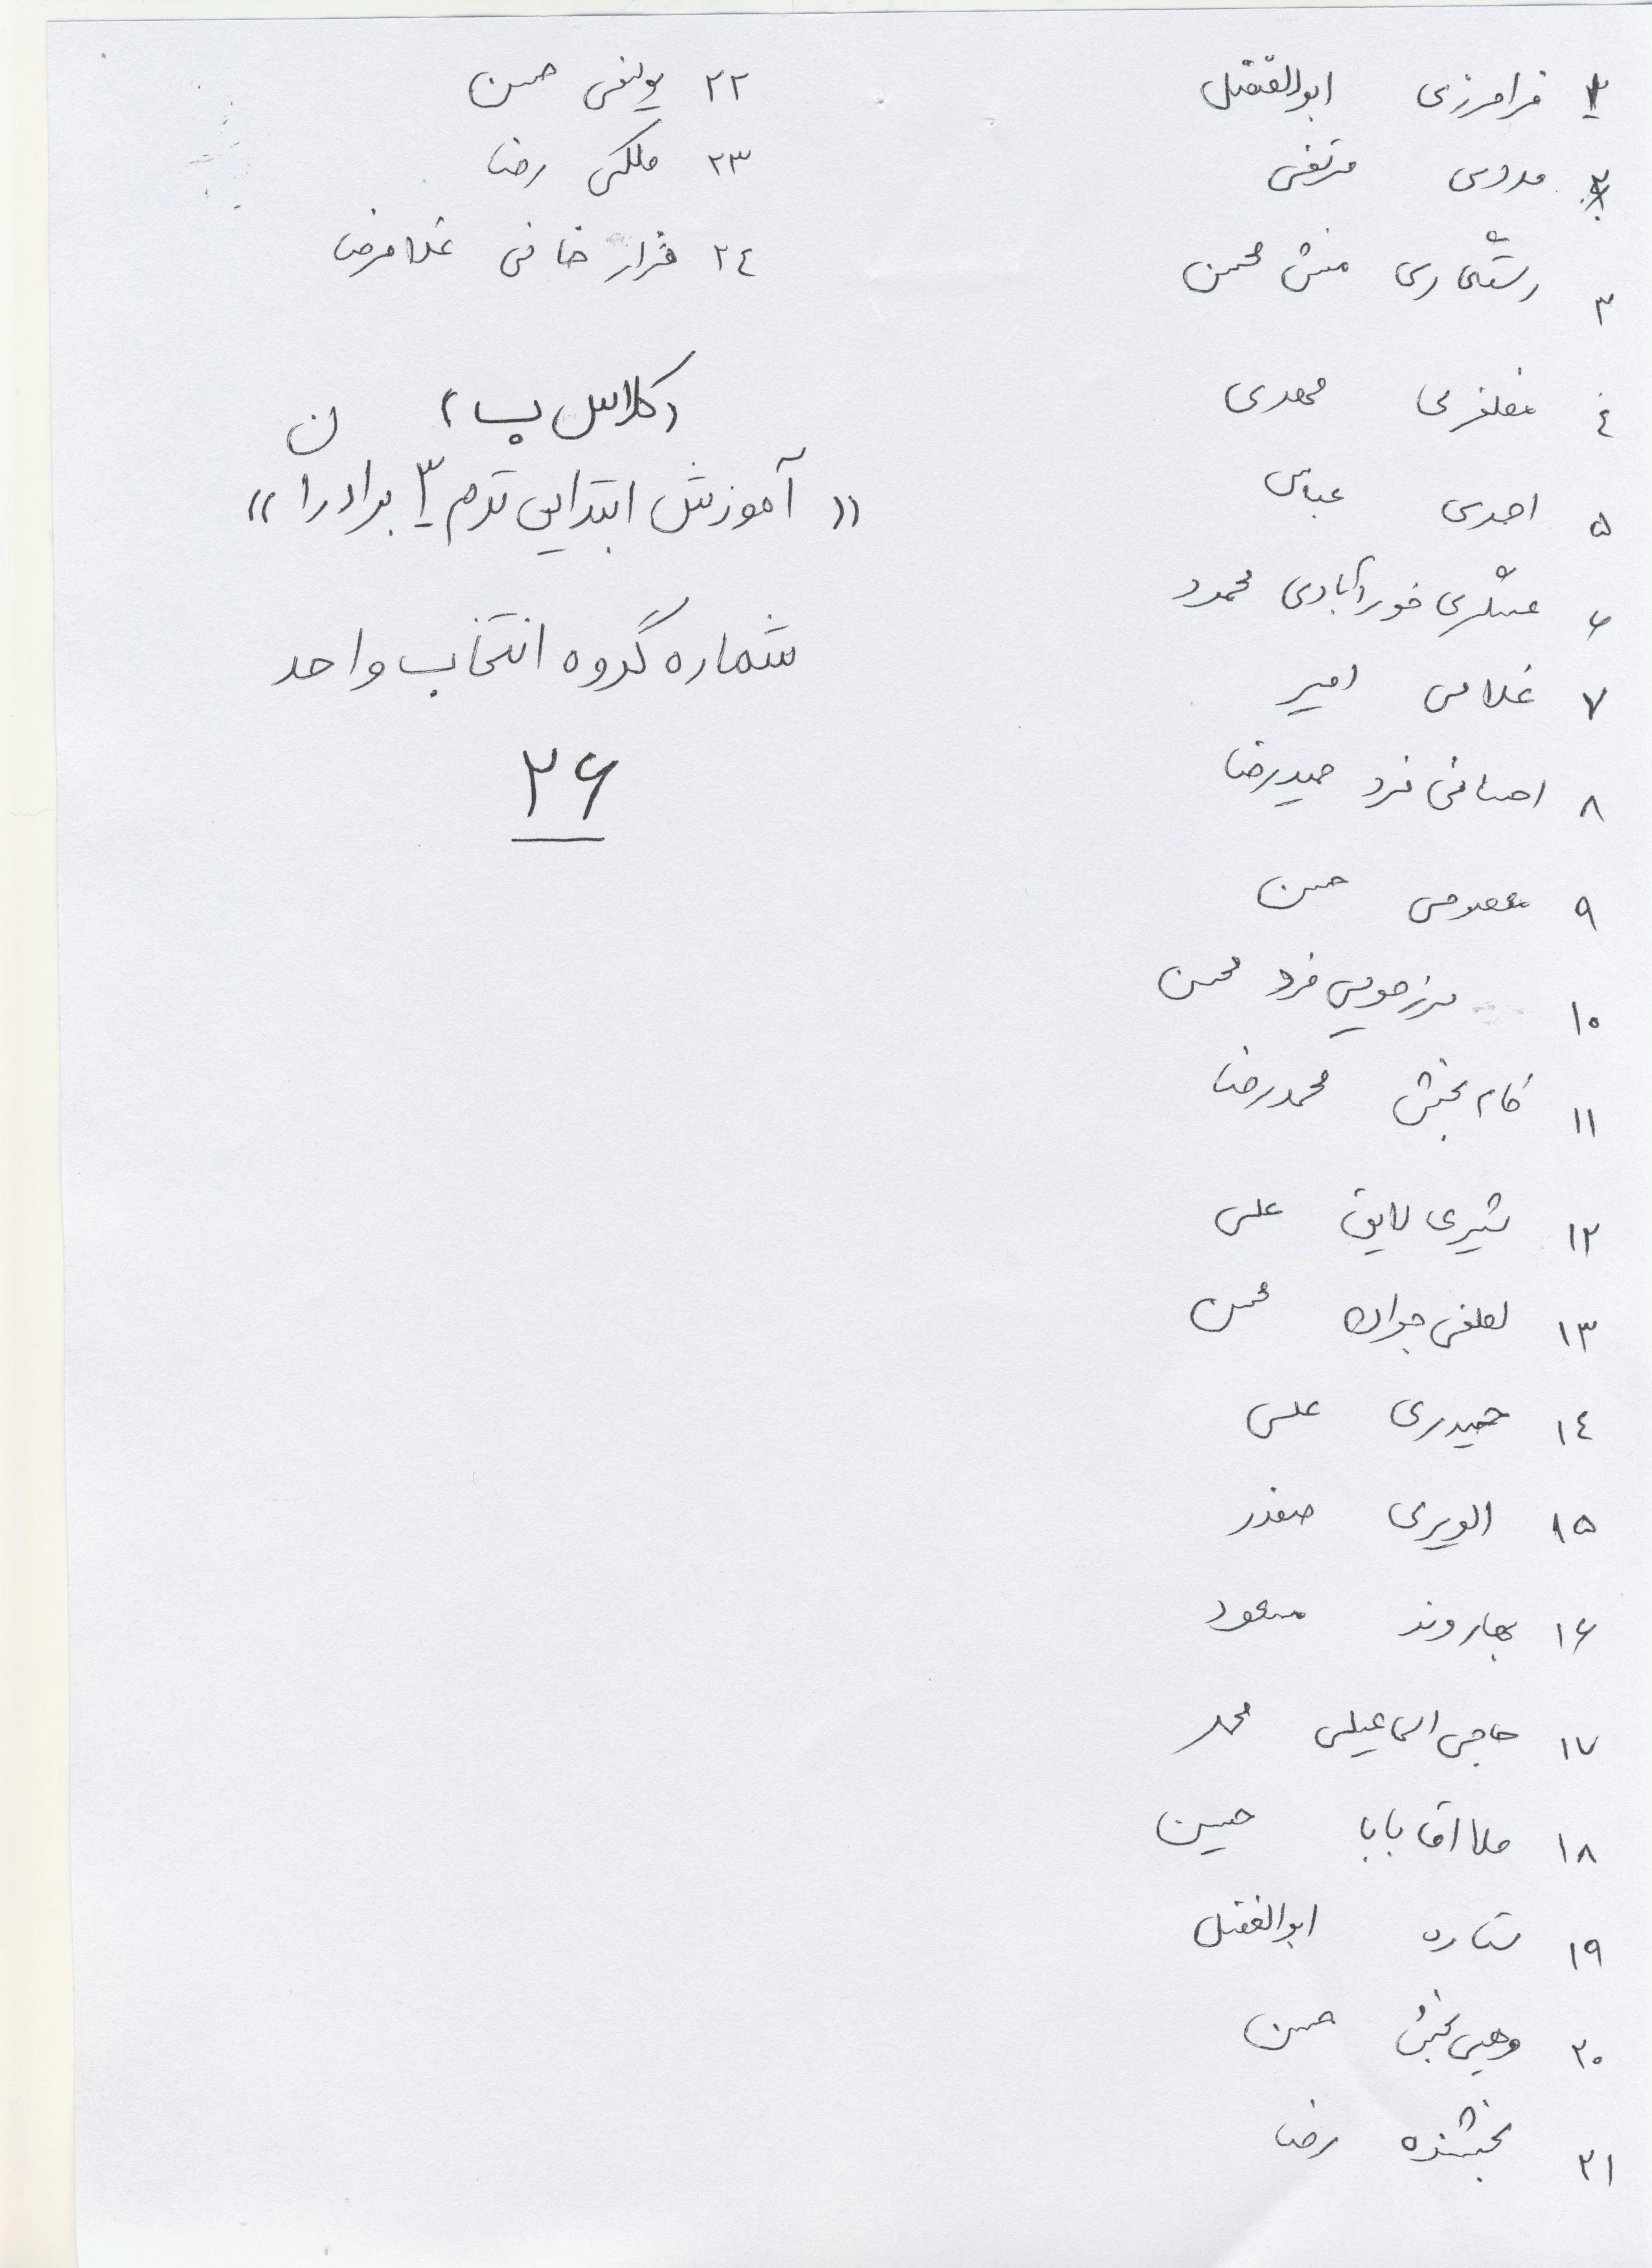 ۱ فرامرزی ابوالفضل
۲ مددی مرتضی
۳ رستگاری منش محسن
٤ مظفری مهدی
۵ احمدی عباس
۶ عسگری خورآبادی محمود
۷ غلامی امیر
۸ احسانی فرد حمیدرضا
۹ معصومی حسن
۱۰ فرد محسن
۱۱ کام بخش محمدرضا
۱۲ شیری لایق علی
۱۳ لطفی جوان محسن
۱٤ حیدری علی
۱۵ الویری صفدر
۱۶ بهاروند مسعود
۱۷ حاجی اسماعیلی محمد
۱۸ ملا اقا بابا حسین
۱۹ ستاره ابوالفضل
۲۰ بخش حسن
۲۱ بخشنده رضا
۲۲ یوسفی حسن
۲۳ ملکی رضا
۲٤ خانی غلامرضا
(کلاس ب)
(( آموزش ابتدایی ترم ۳ برادران ))
شماره گروه انتخاب واحد
۲۶